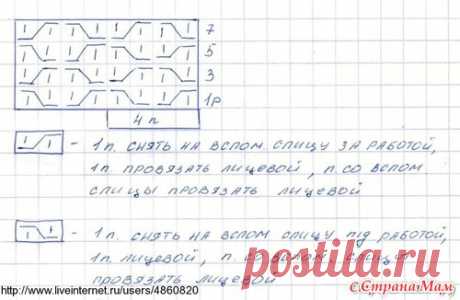 7
5
3
1р
4 п
- 1п. снять на вспом. спицу за работой,
1п. провязать лицевой, п. со вспом.
спицы провязать лицевой
- 1п. снять на вспом спицу під работой,
1п. лицевой, п. со вспом. спицы
провязать лицевой
постила.ru
http://www.liveinternet.ru/users/4860820
©Страна Мам